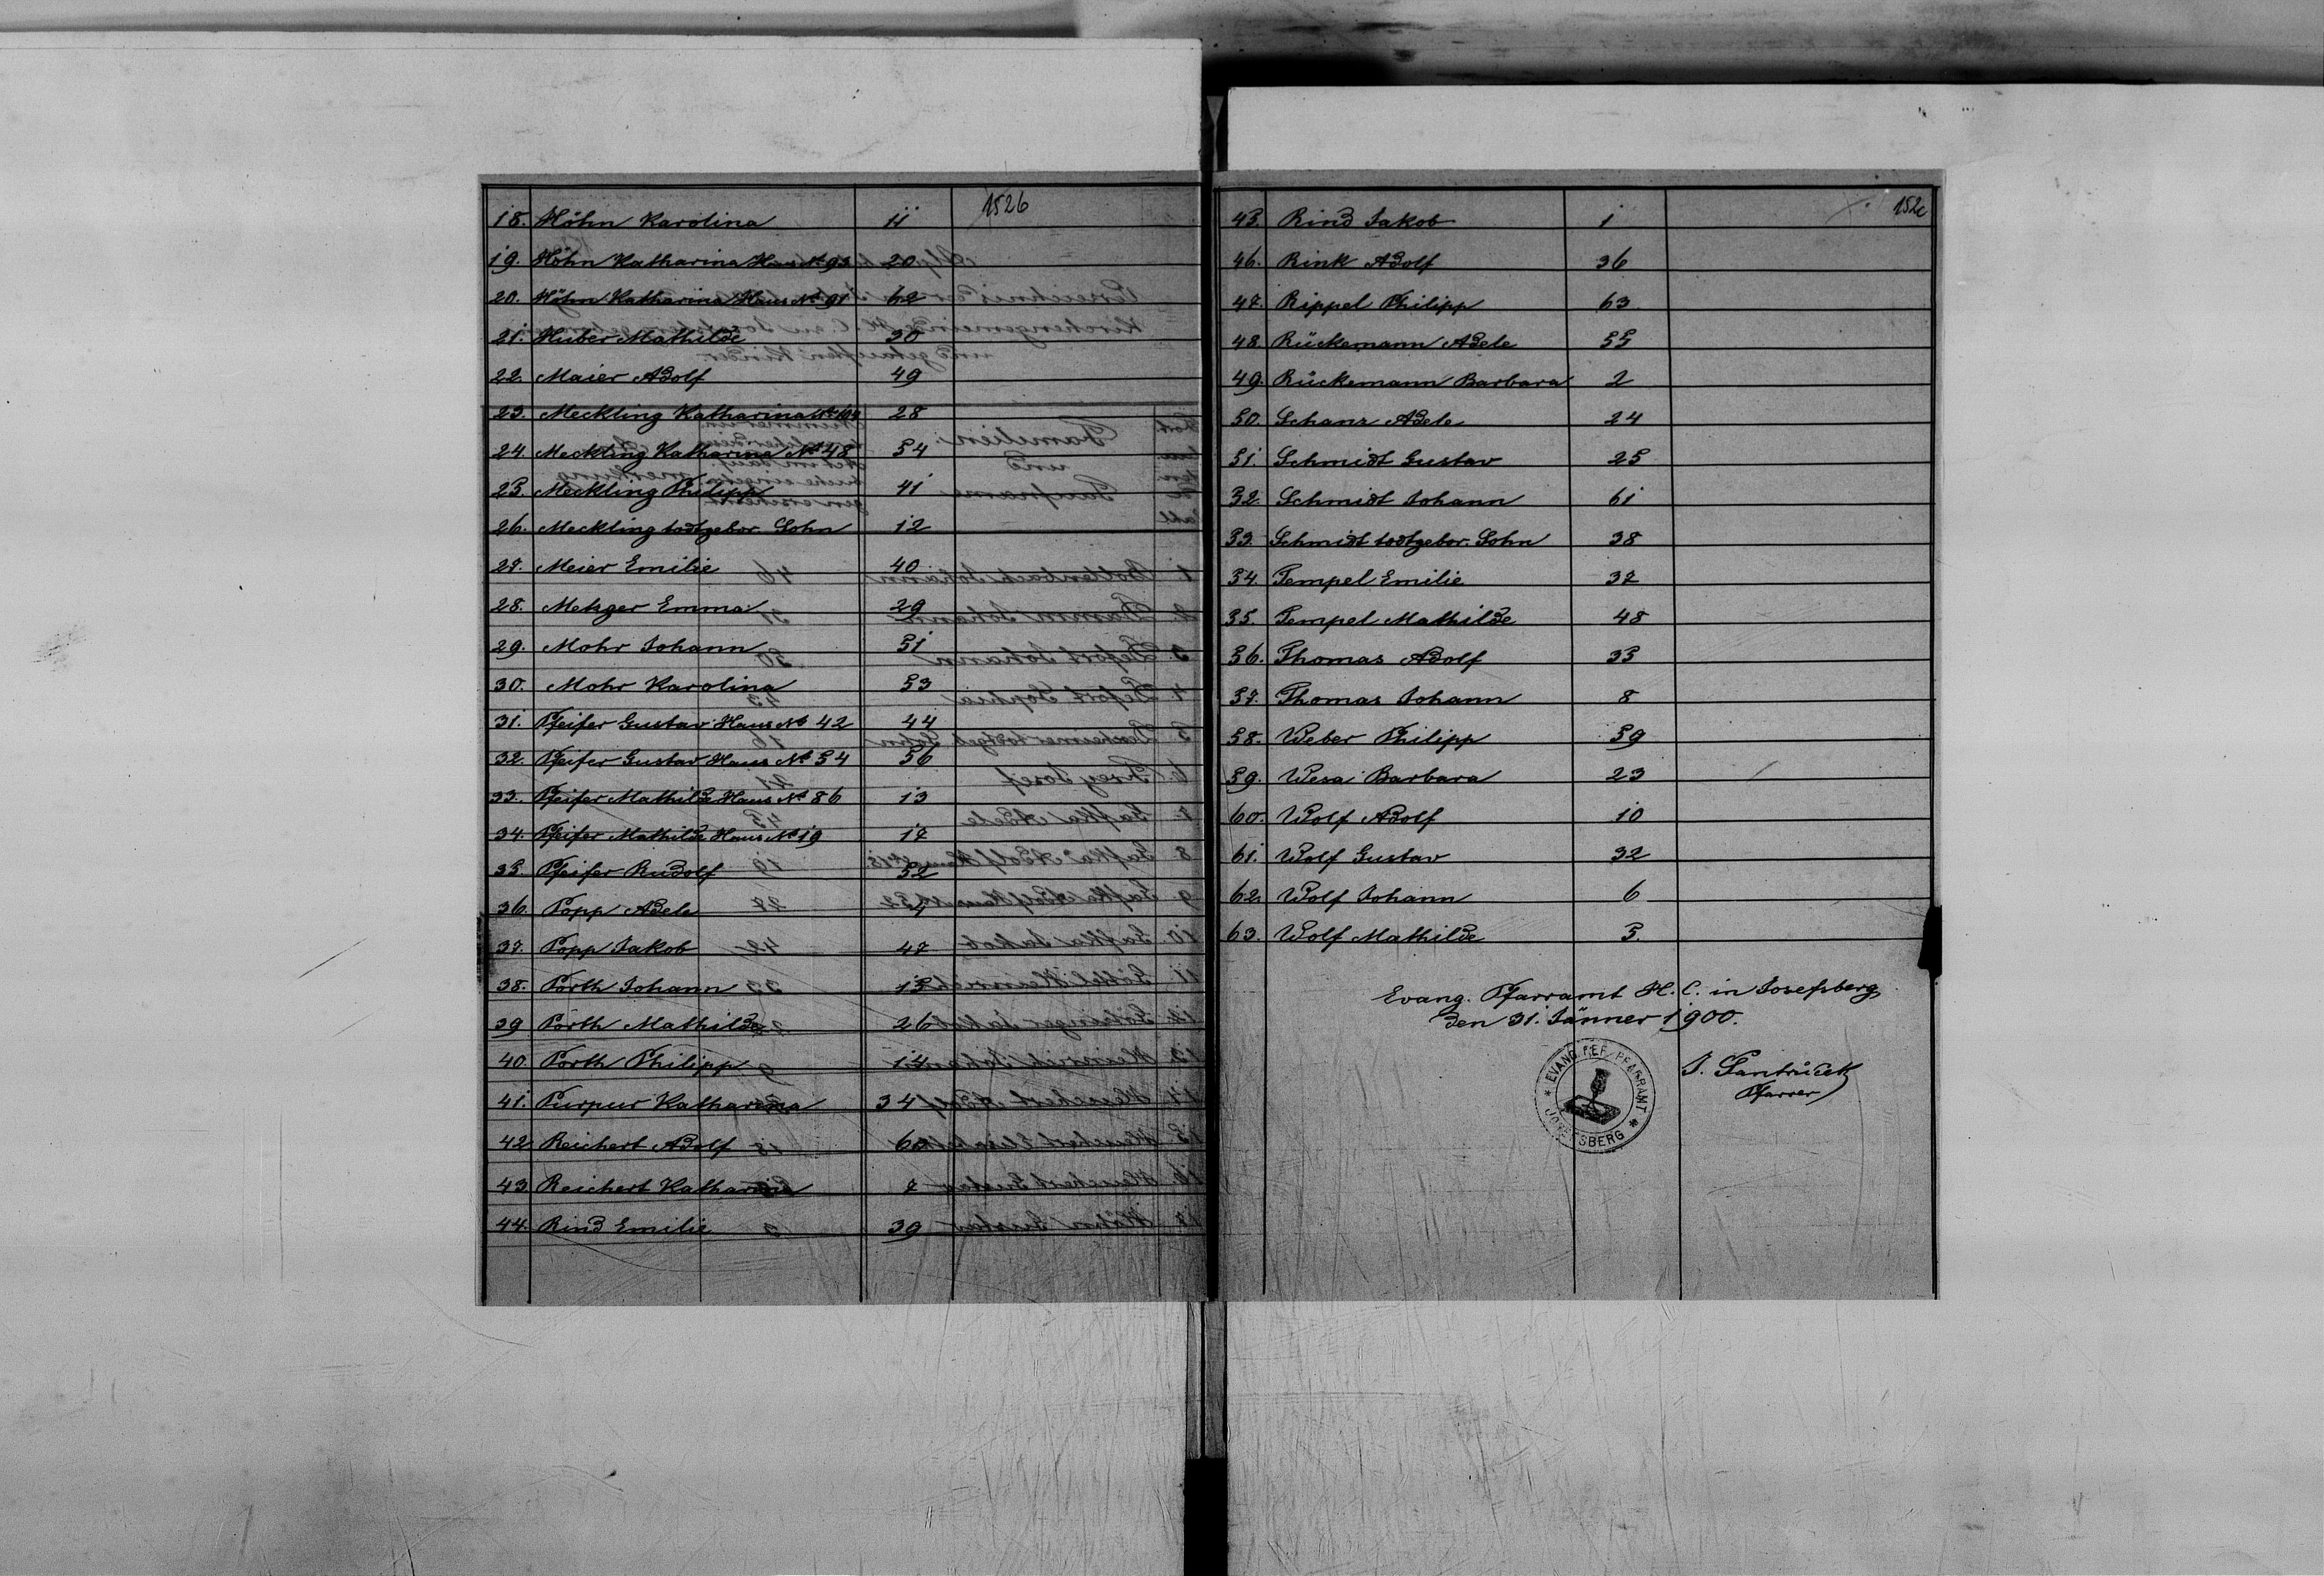 1526
18. Höhn Karolina 11
19. Höhn Katharina Haus No 93 20
20. Höhn Katharina Haus No 91 62
21. Huber Mathilde 30
22. Maier Adolf 49
23. Meckling Katharina No 104 28
24. Meckling Katharina No 48 54
25. Meckling Philipp 41
26. Meckling todtgebor. Sohn 12
27. Meier Emilie 40
28. Metzger Emma 29
29. Mohr Johann 51
30. Mohr Karolina 53
31. Pfeifer Gustav Haus No 42 44
32. Pfeifer Gustav Haus No 54 56
33. Pfeifer Mathilde Haus No 86 13
34. Pfeifer Mathilde Haus No 19 17
35. Pfeifer Rudolf 52
36. Popp Adele
37. Popp Jakob 47
38. Porth Johann 15
39 Porth Mathilde 26
40. Porth Philipp 14
41. Purpur Katharina 34
42 Reichert Adolf 60
43 Reichert Katharina 7
44. Rind Emilie 39
152c
45. Rind Jakob 1
46. Rink Adolf 36
47. Rippel Philipp 63
48. Rückemann Adele 55
49. Rückemann Barbara 2
50. Schanz Adele 24
51. Schmidt Gustav 25
52. Schmidt Johann 61
53. Schmidt todtgebor. Sohn 38
54. Tempel Emilie 37
55. Tempel Mathilde 48
56. Thomas Adolf 35
57. Thomas Johann 8
58. Weber Philipp 59
59. Wesa Barbara 23
60. Wolf Adolf 10
61. Wolf Gustav 32
62. Wolf Johann 6
63. Wolf Mathilde 5.
Evang. Pfarramt H. C. in Josefsberg
den 31. Jänner 1900.
EVANG. REF. PFARRAMT
JOSEFSBERG
Pfarrer